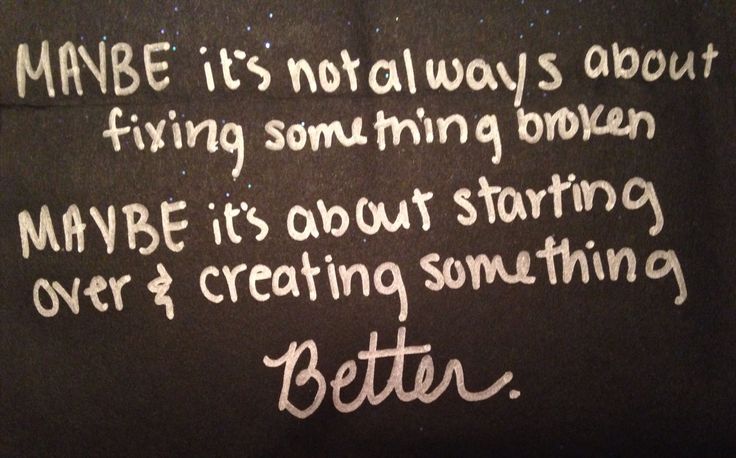 MAYBE it's not always about
fixing something broken
MAYBE it's about starting
over & creating something
Better.